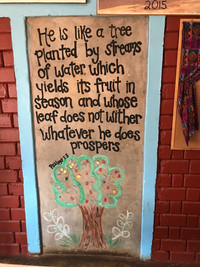 2015
He is like a tree
planted by streams
of water which
yields its fruit in
season and whose
leaf does not wither
whatever he does
prospers
Psalms 1:3